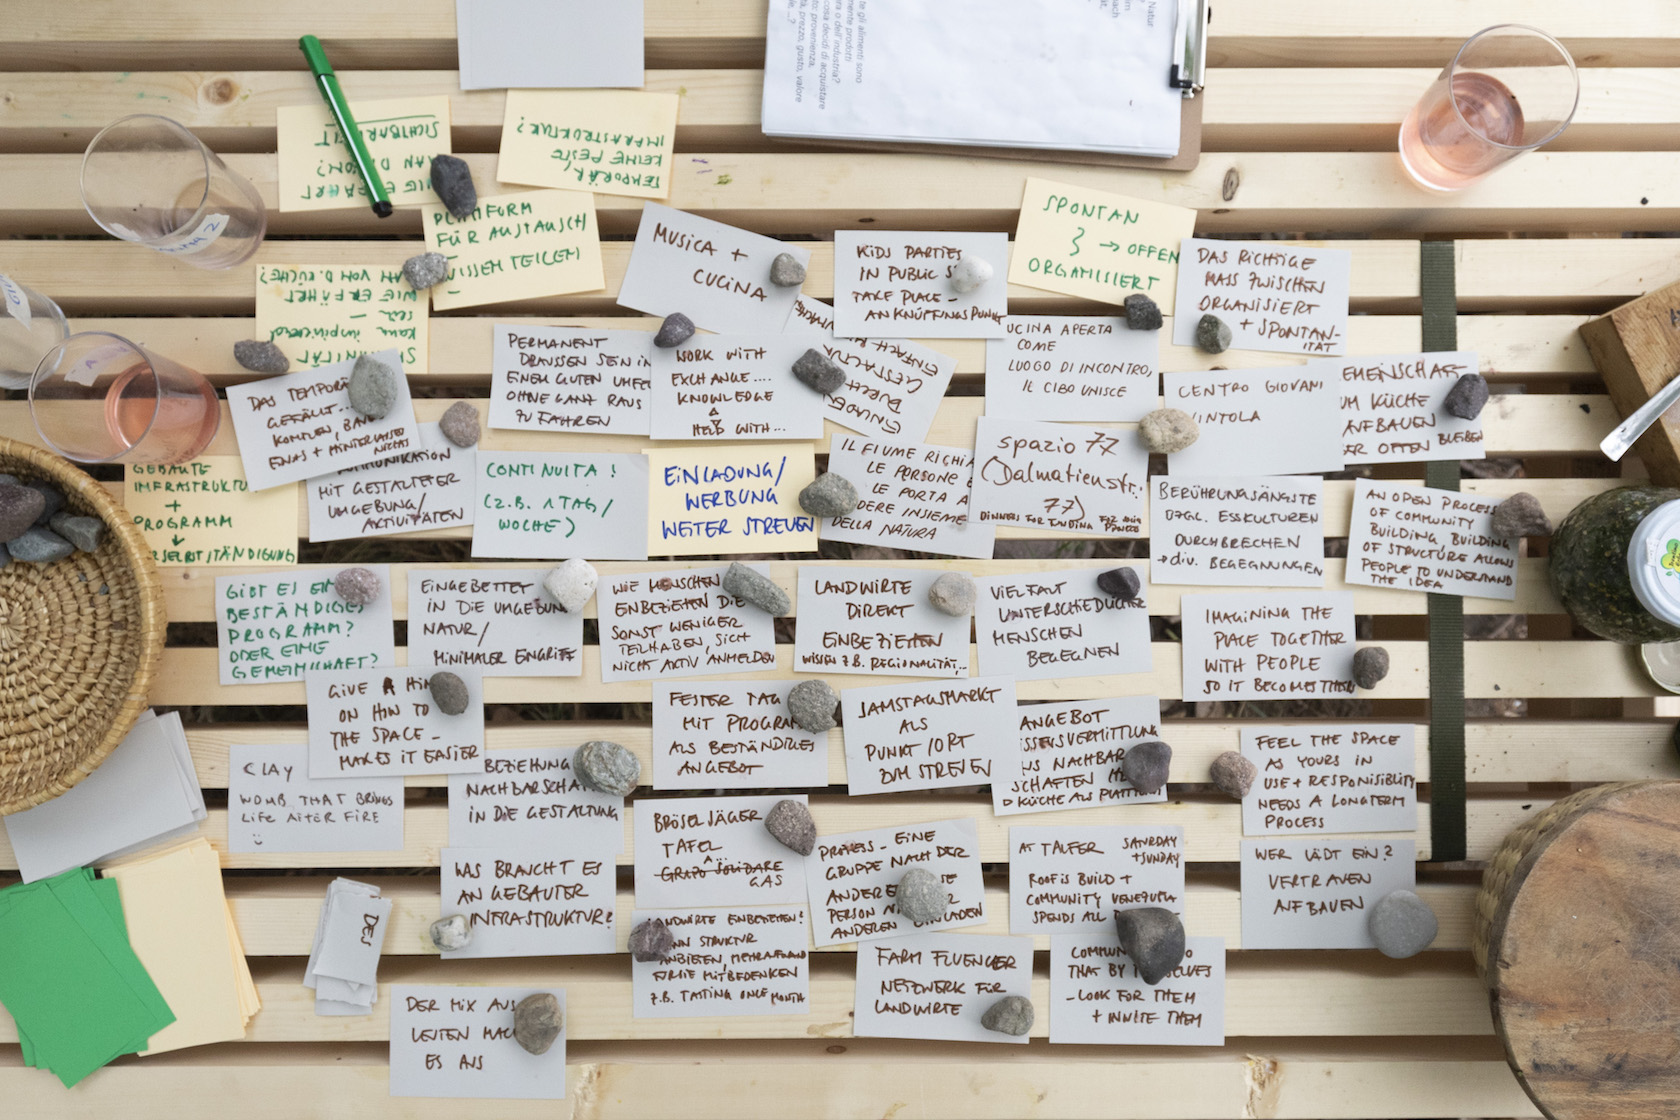 Natur
te gli alimenti sono
mente prodotti
ra o dell'industria?
cosa decidi di acquistare
to: provenienza,
tà, prezzo, gusto, valore
SICHTBARKEIT
MAN DAVON?
WIE ERFÄHRT
TEMPORÄR
KEINE FESTE
INFRASTRUKTUR?
PLATTFORM
FÜR AUSTAUSCH/
WISSEN TEILEN
WIE ERFÄHRT
MAN VON D. KÜCHE?
kann inspirierend
sein
MUSICA +
CUCINA
KIDS PARTIES
IN PUBLIC
TAKE PLACE –
ANKNÜPFUNGSPUNKT
SPONTAN
→ OFFEN
ORGANISIERT
DAS RICHTIGE
MASS ZWISCHEN
ORGANISIERT
+ SPONTAN-
ITÄT
PERMANENT
DRAUSSEN SEIN IN
EINEM GUTEN UMFELD
OHNE GANZ RAUS
ZU FAHREN
WORK WITH
EXCHANGE....
KNOWLEDGE
HELP WITH...
EINLADEND
DURCH
GESTALTUNG
EINFACH
CUCINA APERTA
COME
LUOGO DI INCONTRO,
IL CIBO UNISCE
CENTRO GIOVANI
VINTOLA
GEMEINSCHAFT
UM KÜCHE
AUFBAUEN
OFFEN BLEIBEN
DAS TEMPORÄRE
GEFÄLLT...
KOMMEN, BAUEN
ETWAS + HINTERLASSEN
NICHTS
KOMMUNIKATION
MIT GESTALTETER
UMGEBUNG/
AKTIVITÄTEN
GEBAUTE
INFRASTRUKTUR
+
PROGRAMM
↓
VERSELBSTSTÄNDIGUNG
CONTINUITA!
(Z.B. 1 TAG/
WOCHE)
EINLADUNG/
WERBUNG
WEITER STREUEN
IL FIUME RICHIAMA
LE PERSONE E
LE PORTA A
GODERE INSIEME
DELLA NATURA
spazio 77
(Dalmatienstr.
77)
DINNERS FOR
BERÜHRUNGSÄNGSTE
BZGL. ESSKULTUREN
DURCHBRECHEN
→ div. BEGEGNUNGEN
AN OPEN PROCESS
OF COMMUNITY
BUILDING, BUILDING
OF STRUCTURE ALLOWS
PEOPLE TO UNDERSTAND
THE IDEA
GIBT ES EIN
BESTÄNDIGES
PROGRAMM?
ODER EINE
GEMEINSCHAFT?
EINGEBETTET
IN DIE UMGEBUNG
NATUR/
MINIMALER EINGRIFF
WIE MENSCHEN
EINBEZIEHEN DIE
SONST WENIGER
TEILHABEN, SICH
NICHT AKTIV ANMELDEN
LANDWIRTE
DIREKT
EINBEZIEHEN
WISSEN Z.B. REGIONALITÄT...
VIELFALT
UNTERSCHIEDLICHER
MENSCHEN
BEGEGNEN
IMAGINING THE
PLACE TOGETHER
WITH PEOPLE
SO IT BECOMES THEIRS
GIVE A HINT
ON HOW TO
THE SPACE –
MAKES IT EASIER
FESTER TAG
MIT PROGRAMM
ALS BESTÄNDIGES
ANGEBOT
SAMSTAGSMARKT
ALS
PUNKT/ORT
ZUM STREUEN
ANGEBOT
WISSENSVERMITTLUNG
AUS NACHBAR-
SCHAFTEN
KÜCHE ALS PLATTFORM
FEEL THE SPACE
AS YOURS IN
USE + RESPONSIBILITY
NEEDS A LONGTERM
PROCESS
CLAY
WOMB THAT BRINGS
LIFE AFTER FIRE
BEZIEHUNG
NACHBARSCHAFT
IN DIE GESTALTUNG
BRÖSELJÄGER
TAFEL
GRUPO SOLIDARE
GAS
PROZESS – EINE
GRUPPE NACH DER
ANDEREN
PERSON
ANDEREN EINLADEN
AT TAUFER SATURDAY
+ SUNDAY
ROOF IS BUILD +
COMMUNITY VENEZUELA
SPENDS ALL
WER LÄDT EIN?
VERTRAUEN
AUFBAUEN
WAS BRAUCHT ES
AN GEBAUTER
INFRASTRUKTUR?
LANDWIRTE EINBEZIEHEN?
STRUKTUR
ANBIETEN, MEHRAUFWAND
FÜR SIE MITBEDENKEN
Z.B. TASTING ONCE MONTH
FARM FLUENCER
NETZWERK FÜR
LANDWIRTE
THAT BY THEMSELVES
– LOOK FOR THEM
+ INVITE THEM
DES
DER MIX AUS
LEUTEN MACHT
ES AUS